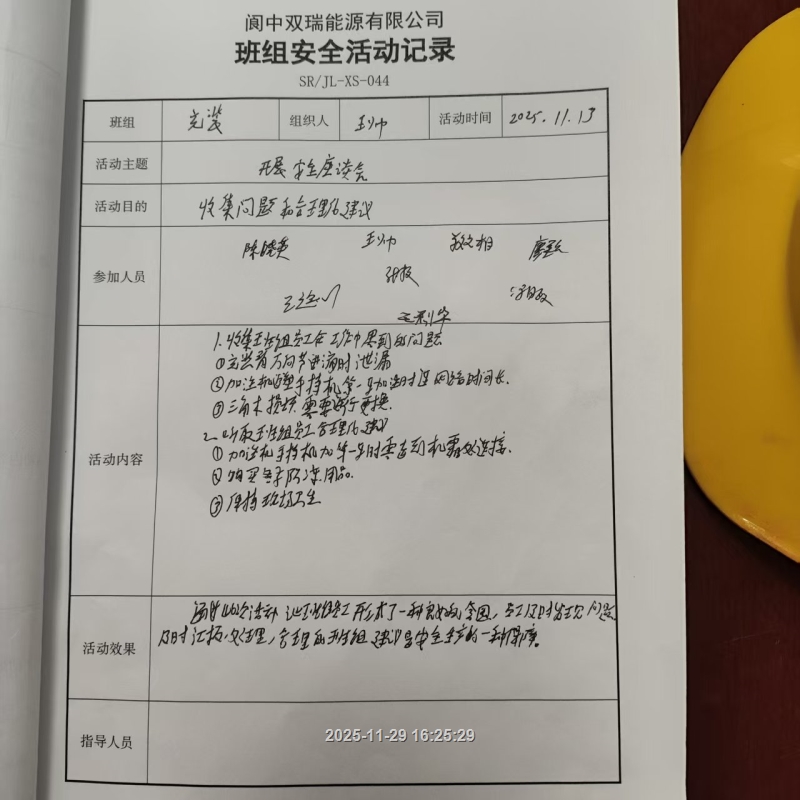 阆中双瑞能源有限公司
班组安全活动记录
SR/JL-XS-044
班组 充装 组织人 王帅 活动时间 2025.11.13
活动主题 开展安全座谈会
活动目的 收集问题和合理化建议
参加人员 陈晓英 王帅
1.收集班组员工在工作中遇到的问题
①充装前万向节进液时泄漏
②加注机手持机第一加注时网络时间长.
③三角木损坏需要进行更换.
2.听取班组员工合理化建议
①加注机手持机加第一时需查到机器好连接.
②购买冬季防冻用品.
③保持现场卫生
活动内容
通过此次活动让班组员工形成了一种良好的氛围,员工及时发现问题
及时汇报,处理,合理的班组建议是安全生产的一种保障。
活动效果
指导人员
2025-11-29 16:25:29